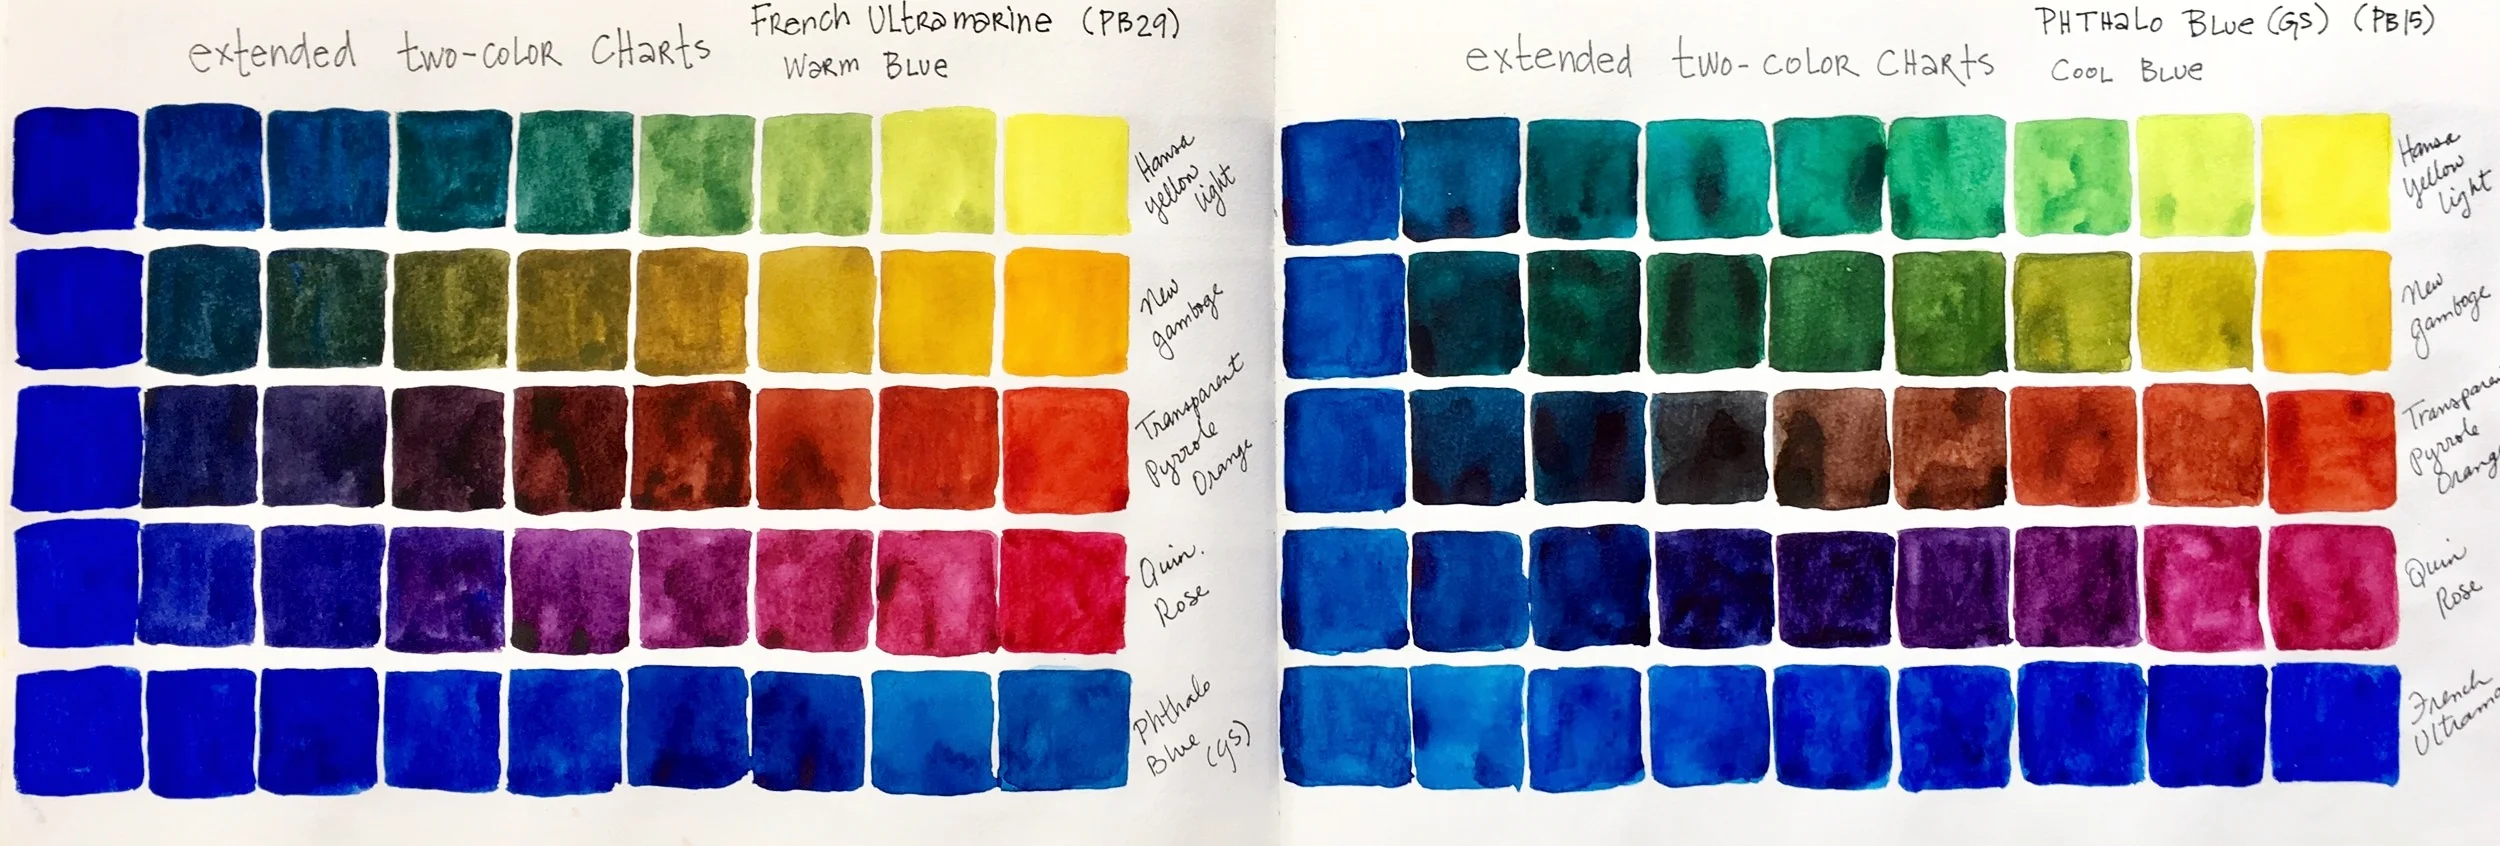 extended two-color Charts
French Ultramarine (PB29)
Warm Blue
Hansa
yellow
light
New
gamboge
Transparent
Pyrrole
Orange
Quin.
Rose
Phthalo
Blue
(GS)
extended two-color Charts
PHTHalo Blue (GS) (PB15)
Cool Blue
Hansa
Yellow
Light
New
gamboge
Transparen
Pyrrole
Orang
Quin
Rose
French
Ultrama